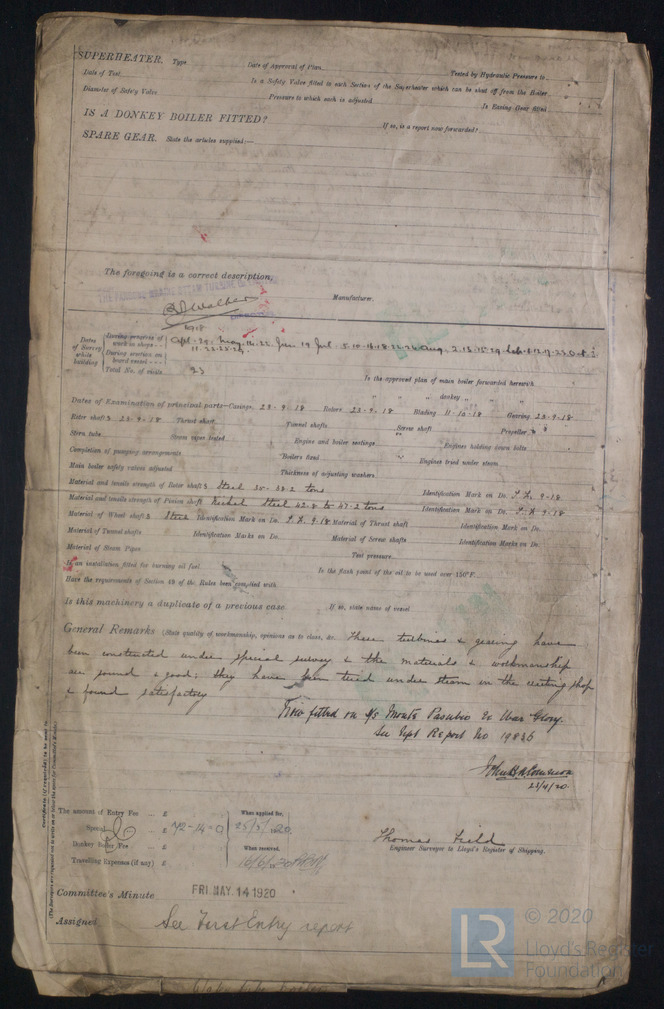 SUPERHEATER. Type Date of Approval of Plan Tested by Hydraulic Pressure to
Date of Test Is a Safety Valve fitted to each Section of the Superheater which can be shut off from the Boiler
Diameter of Safety Valve Pressure to which each is adjusted Is Easing Gear fitted
IS A DONKEY BOILER FITTED? If so, is a report now forwarded?
SPARE GEAR. State the articles supplied:—
The foregoing is a correct description,
Manufacturer.
Dates of Survey while building
During progress of work in shops - -
During erection on board vessel - - -
Total No. of visits 23
Is the approved plan of main boiler forwarded herewith
" " " donkey " " "
Dates of Examination of principal parts—Casings 23-9-18 Rotors 23-9-18 Blading 11-10-18 Gearing 23-9-18
Rotor shafts 23-9-18 Thrust shaft Tunnel shafts Screw shaft Propeller
Stern tube Steam pipes tested Engine and boiler seatings Engines holding down bolts
Completion of pumping arrangements Boilers fixed Engines tried under steam
Main boiler safety valves adjusted Thickness of adjusting washers
Material and tensile strength of Rotor shafts Steel tons Identification Mark on Do. 9-18
Material and tensile strength of Pinion shaft Nickel Steel 42.8 to 47.2 tons Identification Mark on Do. 9-18
Material of Wheel shafts Steel Identification Mark on Do. 9.18 Material of Thrust shaft Identification Mark on Do.
Material of Tunnel shafts Identification Marks on Do. Material of Screw shafts Identification Marks on Do.
Material of Steam Pipes Test pressure
Is an installation fitted for burning oil fuel Is the flash point of the oil to be used over 150°F.
Have the requirements of Section 49 of the Rules been complied with
Is this machinery a duplicate of a previous case If so, state name of vessel
General Remarks (State quality of workmanship, opinions as to class, &c. These turbines & gearing have
been constructed under special survey & the materials & workmanship
are sound & good; they have been tried under steam in the erecting shop
& found satisfactory
Now fitted on S/S Monte Pasubio Ex War Glory.
See Report No 19826
23/4/20
The amount of Entry Fee .. £
Special £ 72-14-0
Donkey Boiler Fee £
Travelling Expenses (if any) £
When applied for,
When received,
Thomas Field
Engineer Surveyor to Lloyd's Register of Shipping.
Committee's Minute FRI. MAY. 14 1920
Assigned See First Entry report
© 2020
LR
Lloyd's Register
Foundation